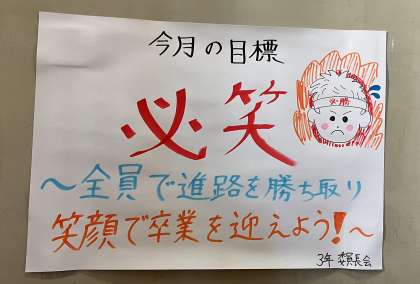 今月の目標
必笑
必勝
～全員で進路を勝ち取り
笑顔で卒業を迎えよう!～
3年 委員長会